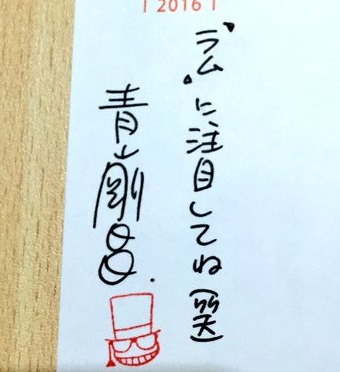 | 2016 |
"ラム"に注目してね(笑)
青山剛昌.